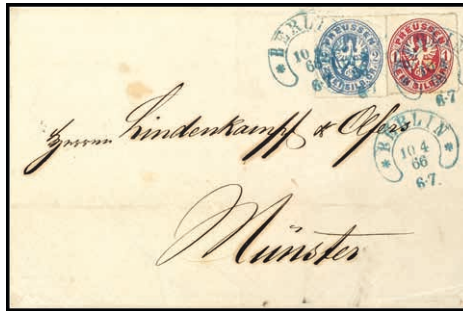 BERLIN
10 4
66
6-7.
PREUSSEN
PREUSSEN
1
EIN SILBERGR.
BERLIN
10 4
66
6-7.
Herren Lindenkampf & Olfers
Münster